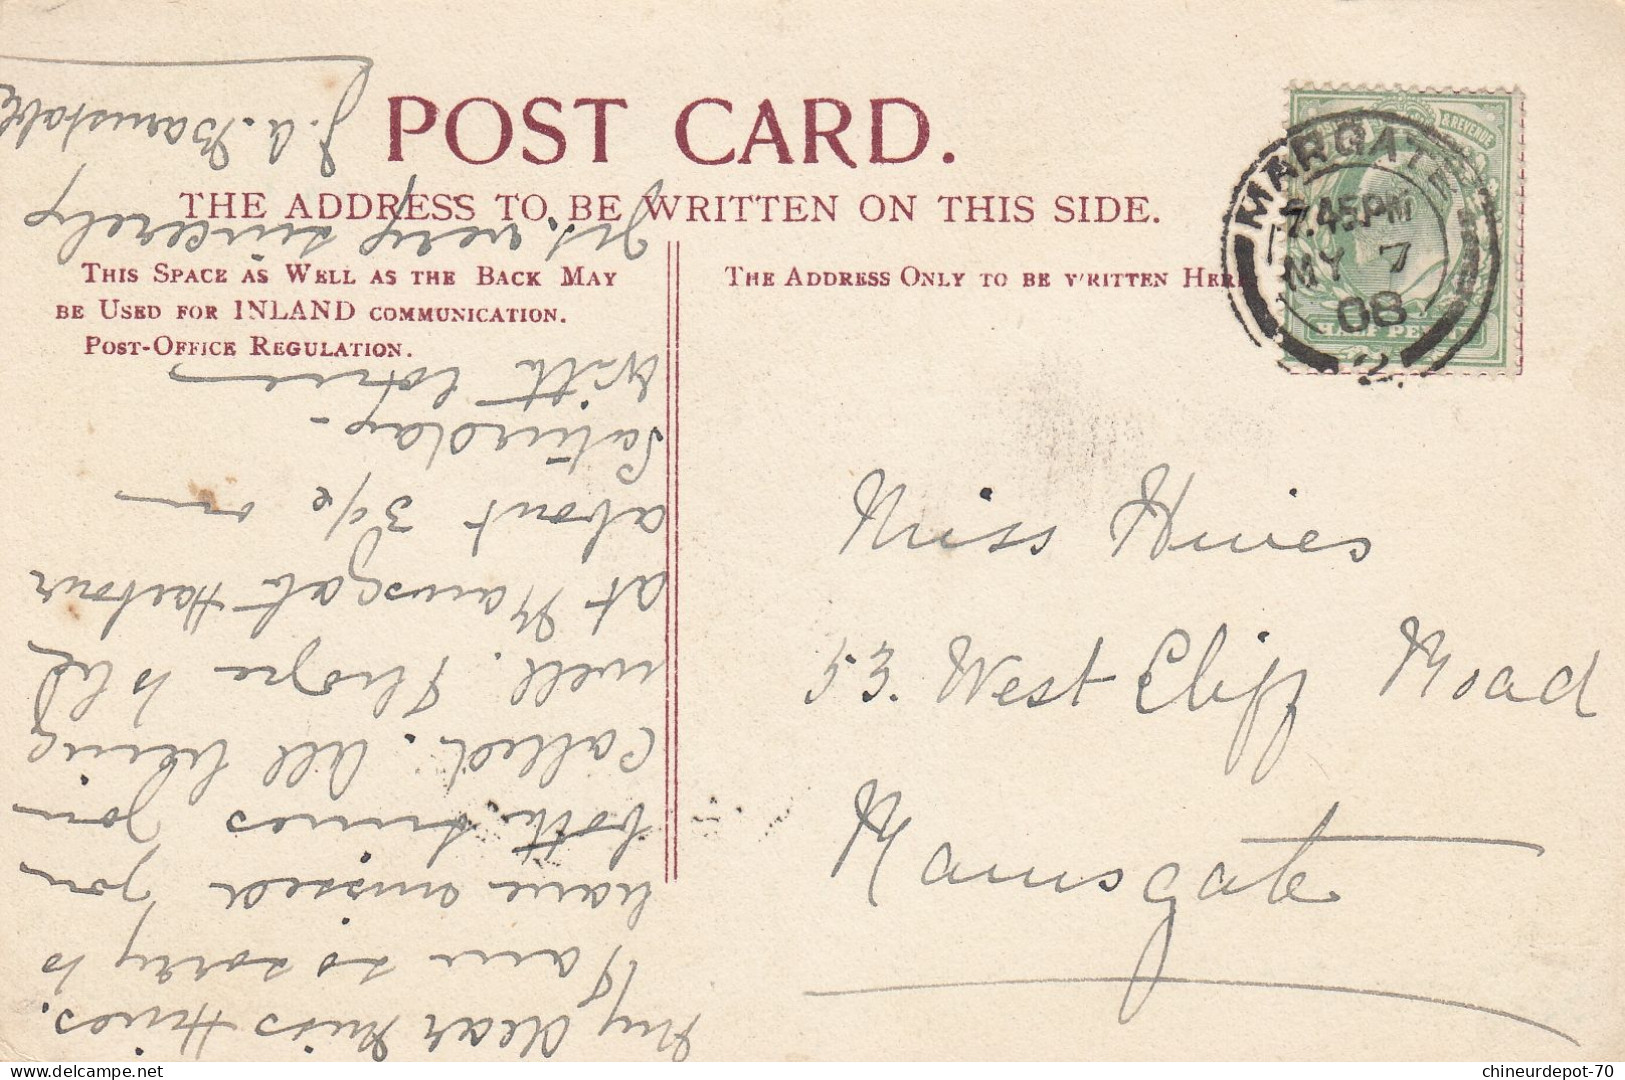 POST CARD.
THE ADDRESS TO BE WRITTEN ON THIS SIDE.
THIS SPACE AS WELL AS THE BACK MAY
BE USED FOR INLAND COMMUNICATION.
POST-OFFICE REGULATION.
THE ADDRESS ONLY TO BE WRITTEN HERE
MARGATE
7.45.PM
MY 7
08
2
& REVENUE
HALFPENNY
Miss Hines
53. West Cliff Road
Ramsgate
My dear Miss Hines.
I am so sorry to
have missed you
both times you
called. All being
well. I hope to be
at Ramsgate Harbour
about 3 o/c on
Saturday -
With
Yrs. very sincerely
J. A. Barnstable
chineurdepot-70